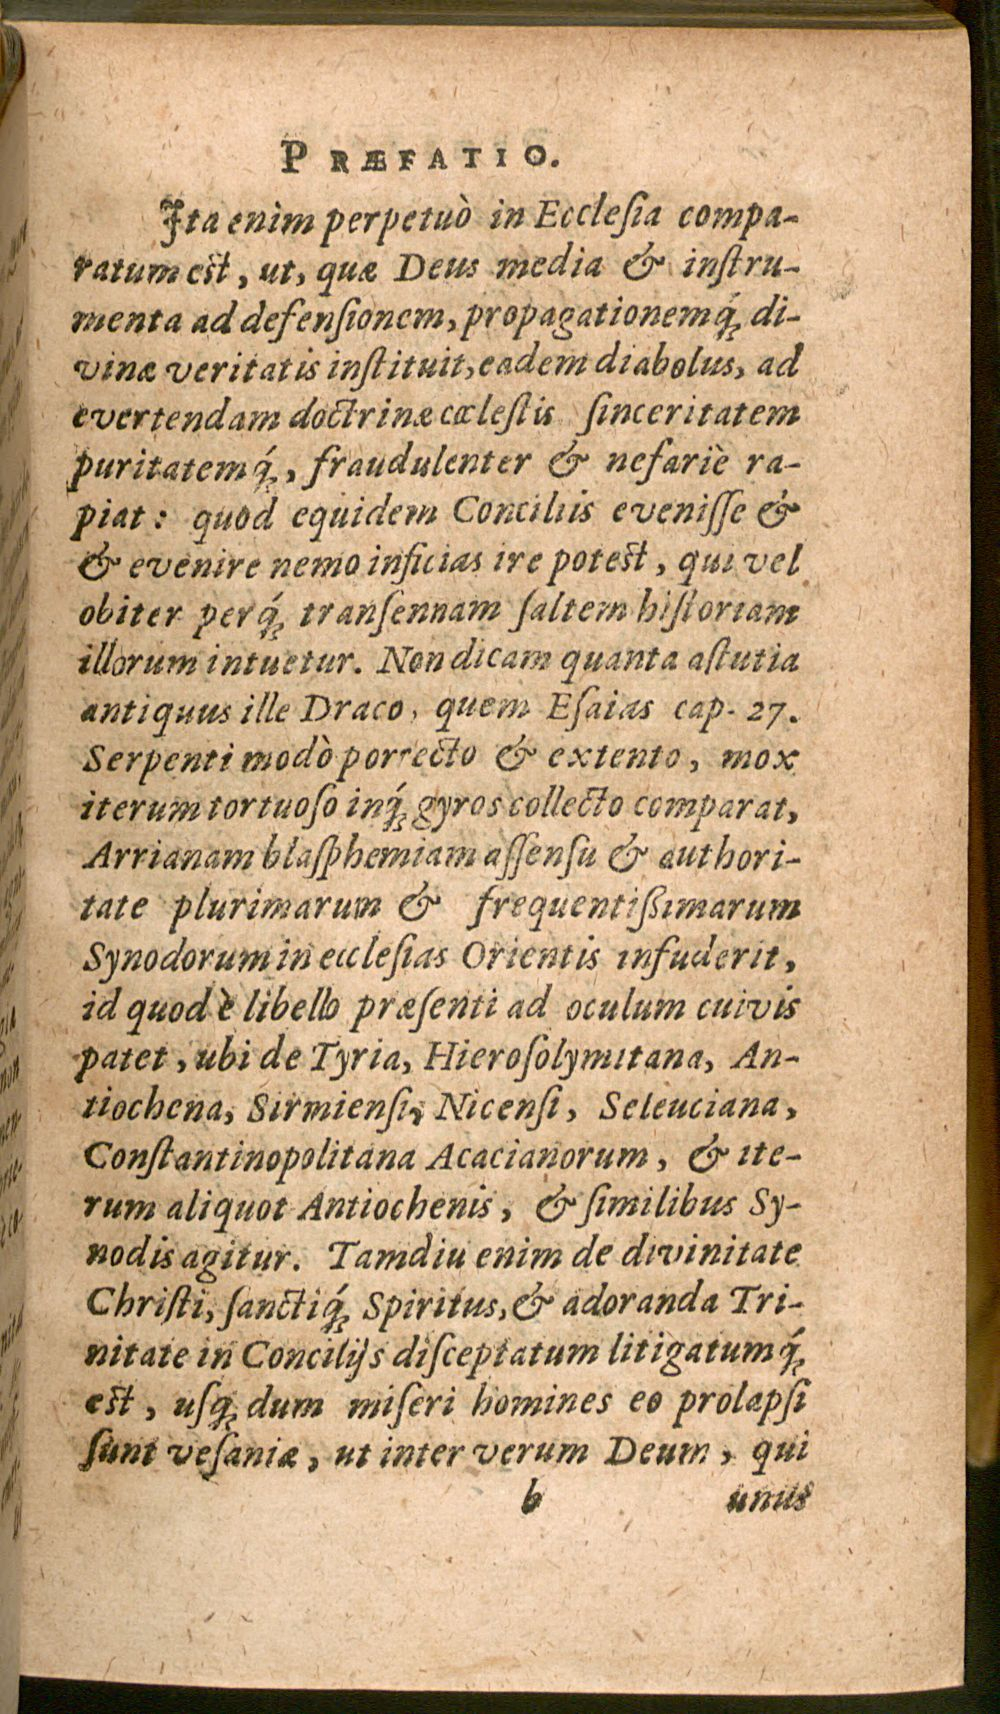 PRÆFATIO.
Ita enim perpetuò in Ecclesia compa-
ratum est, ut, quæ Deus media & instru-
menta ad defensionem, propagationemq́; di-
vinæ veritatis instituit, eadem diabolus, ad
evertendam doctrinæ cœlestis sinceritatem
puritatemq́;, fraudulenter & nefariè ra-
piat: quod equidem Conciliis evenisse &
& evenire nemo inficias ire potest, qui vel
obiter perq́; transennam saltem historiam
illorum intuetur. Non dicam quanta astutia
antiquus ille Draco, quem Esaias cap. 27.
Serpenti modò porrecto & extento, mox
iterum tortuoso inq́; gyros collecto comparat,
Arrianam blasphemiam assensu & authori-
tate plurimarum & frequentissimarum
Synodorum in ecclesias Orientis infuderit,
id quod è libello præsenti ad oculum cuivis
patet, ubi de Tyria, Hierosolymitana, An-
tiochena, Sirmiensi, Nicensi, Seleuciana,
Constantinopolitana Acacianorum, & ite-
rum aliquot Antiochenis, & similibus Sy-
nodis agitur. Tamdiu enim de divinitate
Christi, sanctiq́; Spiritus, & adoranda Tri-
nitate in Concilijs disceptatum litigatumq́;
est, usq; dum miseri homines eo prolapsi
sunt vesaniæ, ut inter verum Deum, qui
b unus